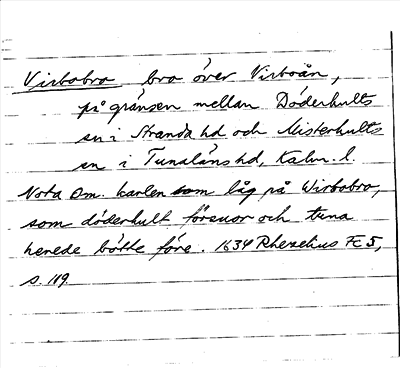 Virbobro bro över Virboån,
på gränsen mellan Döderhults
sn i Stranda hd och Misterhults
sn i Tunaläns hd, Kalm. l.
Nota om. karlen som låg på Wirbobro,
som döderhult försvor och tuna
herede bötte före. 1634 Rhezelius FC 5,
s. 119.